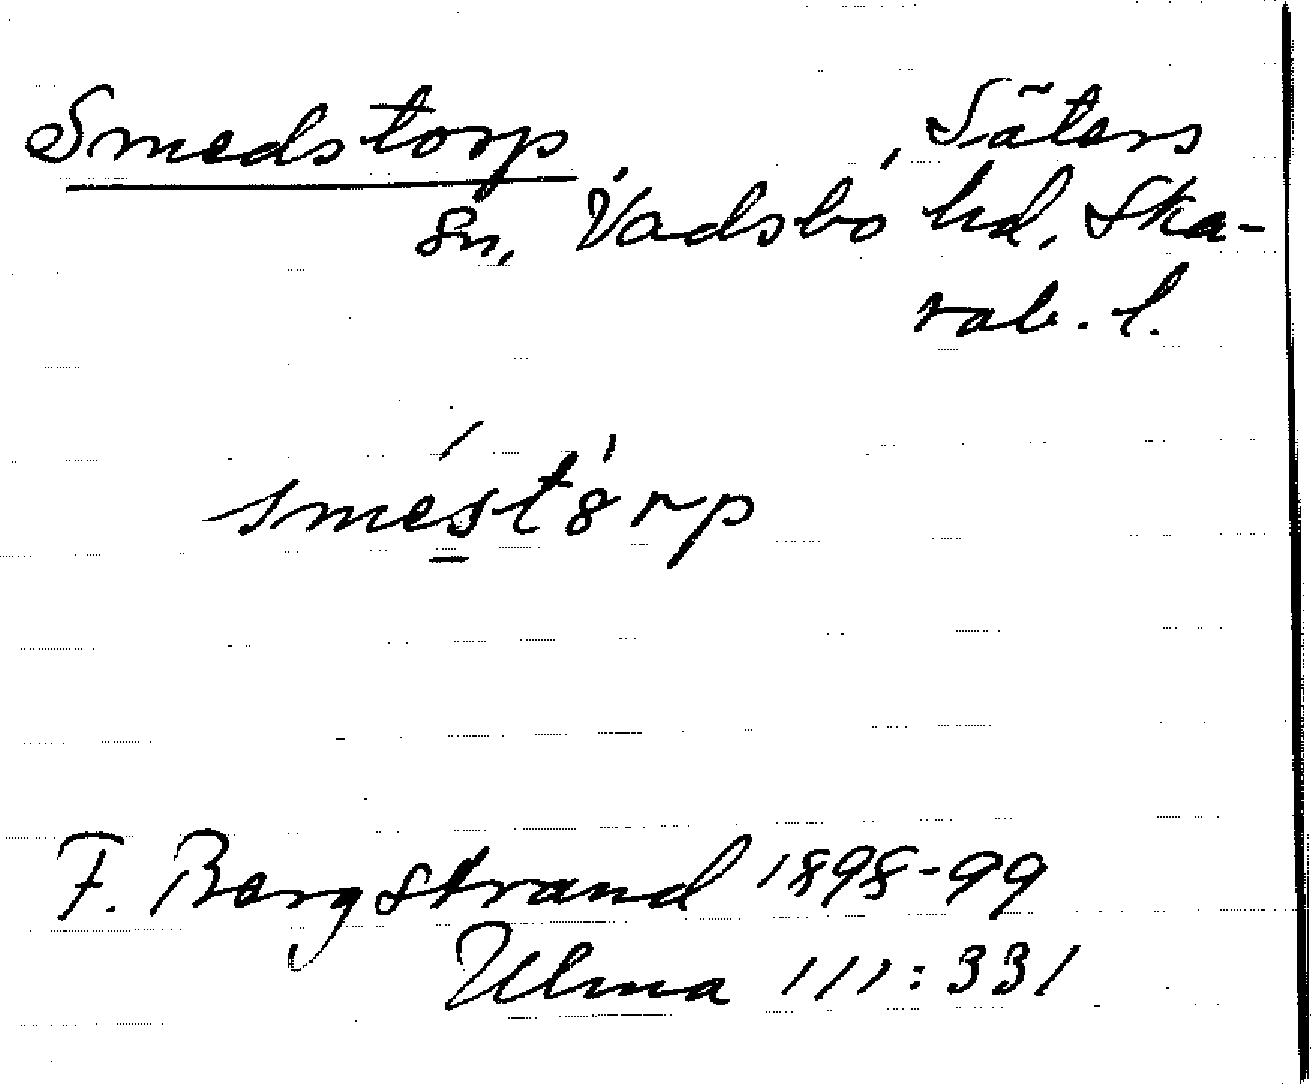 Smedstorp, Säters
sn, Vadsbo hd, Ska-
rab. l.
sméstʹ8rp
F. Bergstrand 1898-99
Ulma 111:331